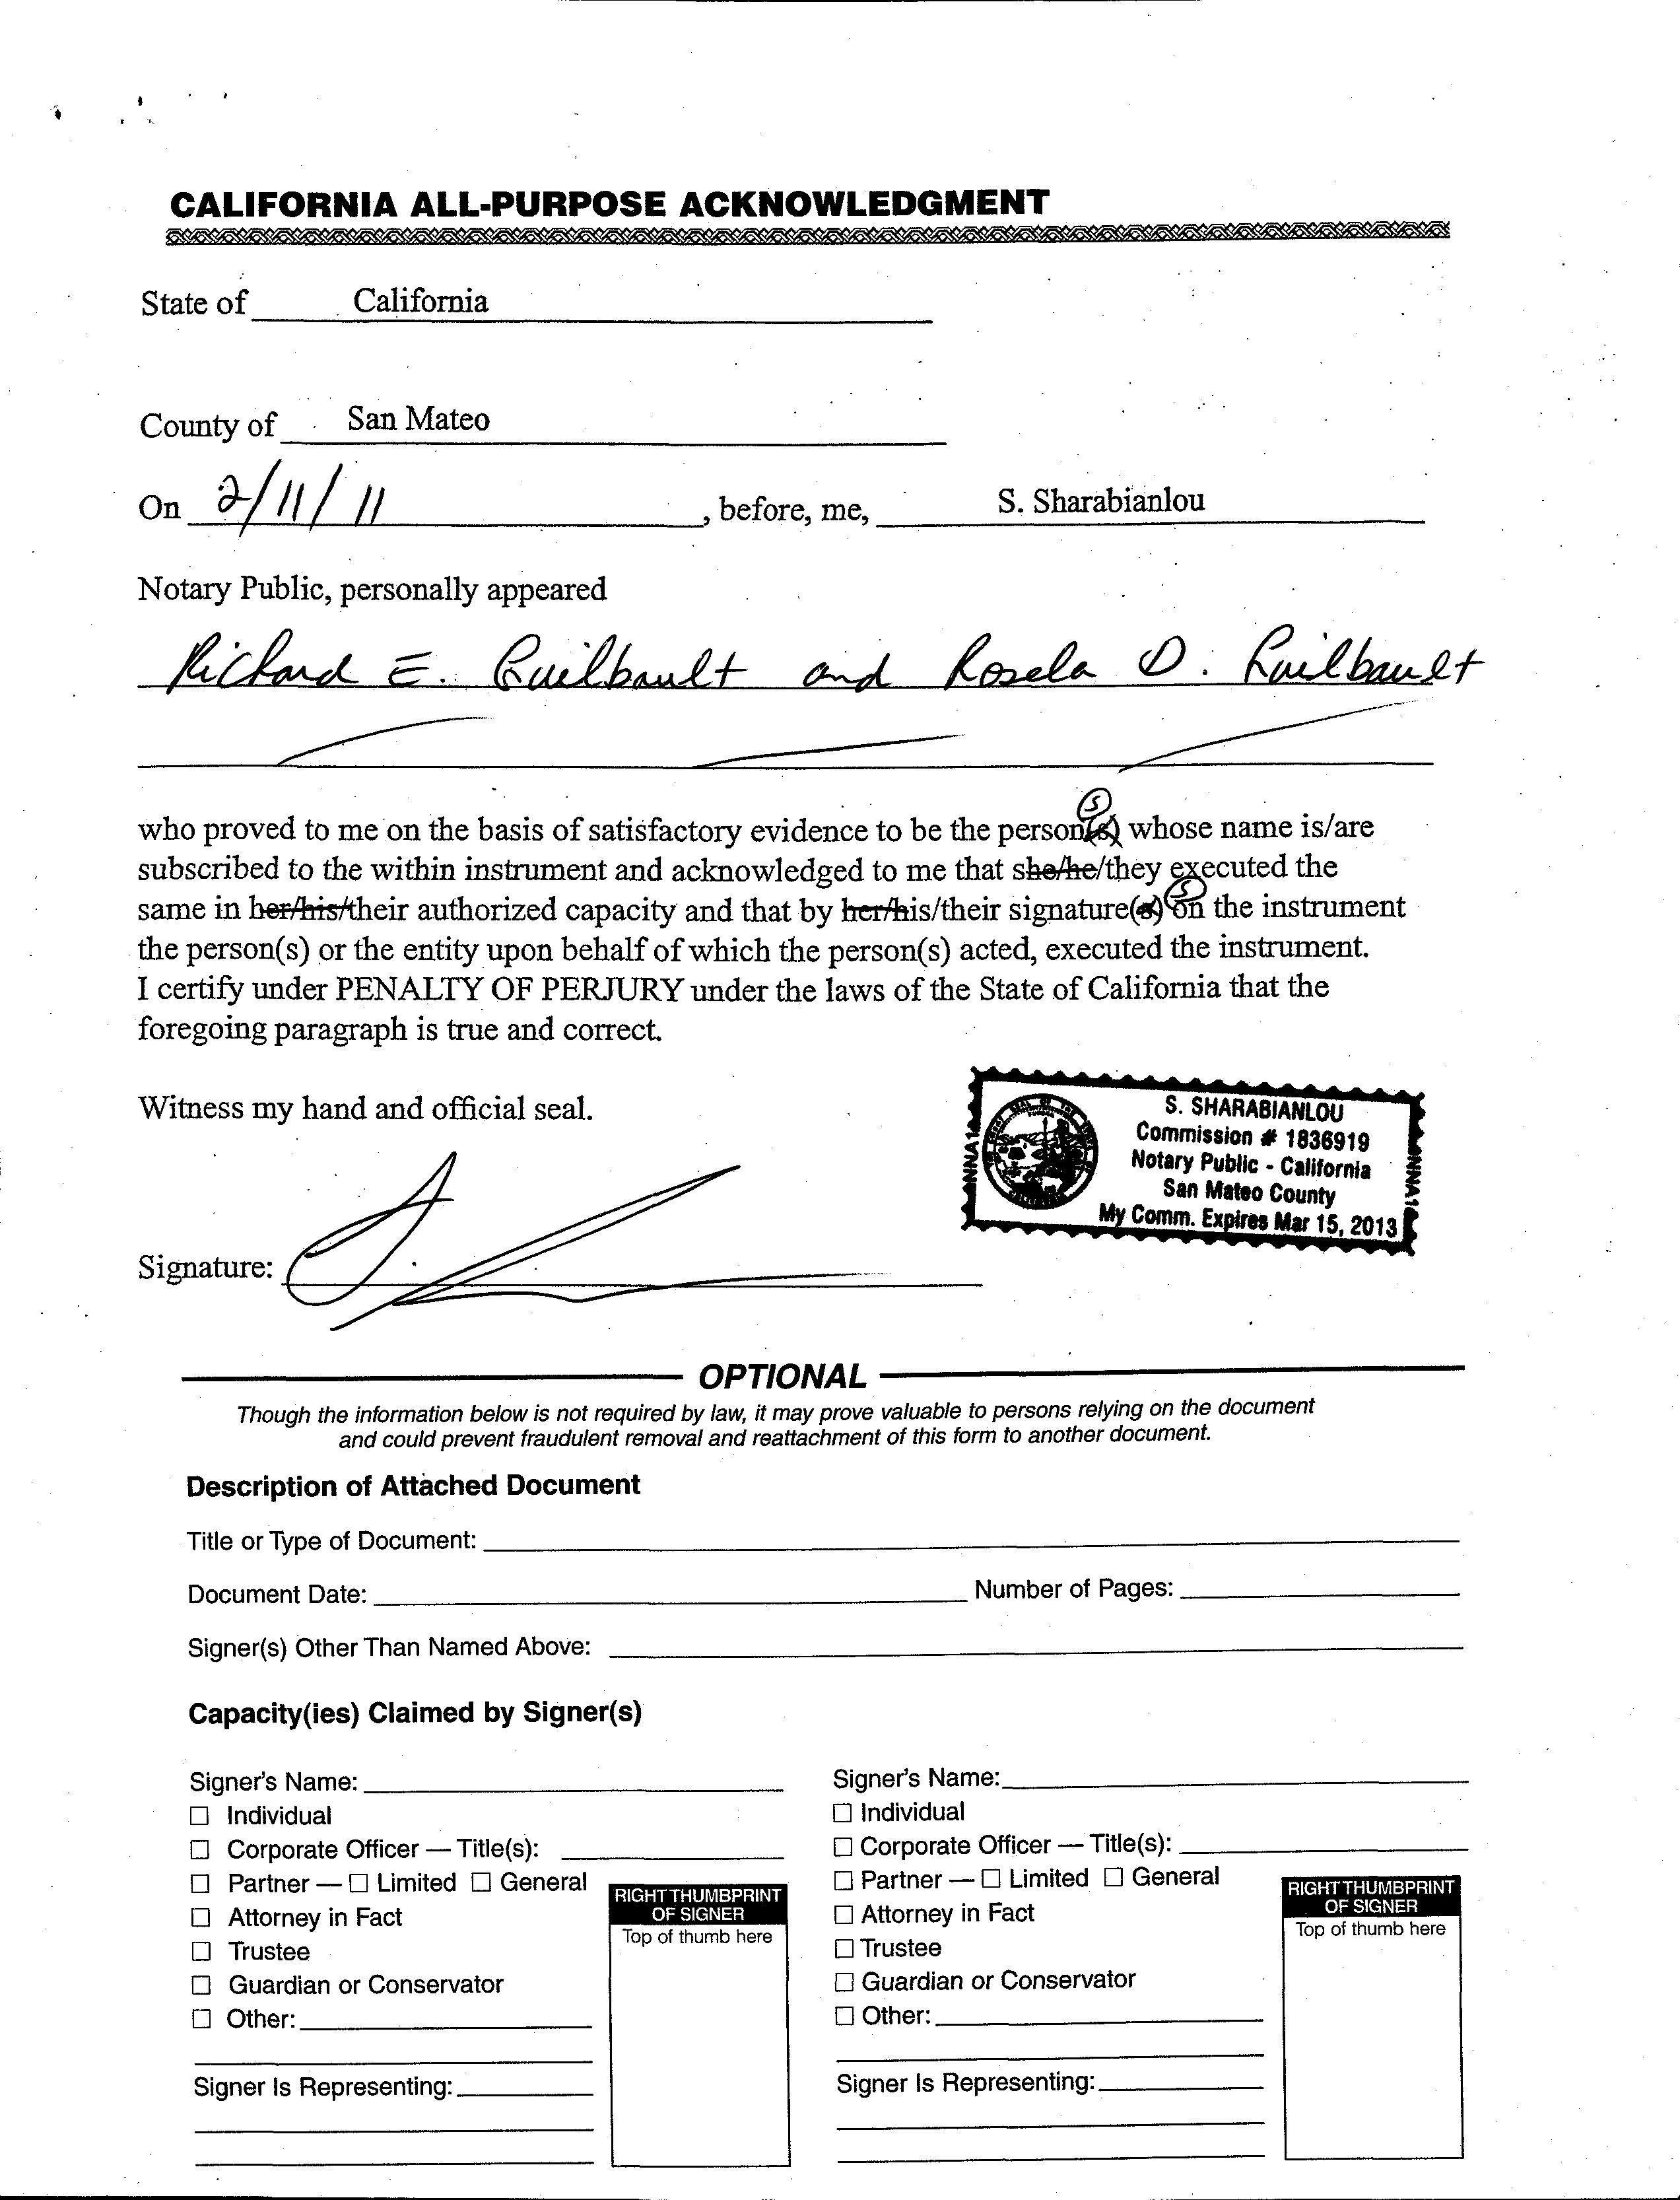 CALIFORNIA ALL-PURPOSE ACKNOWLEDGMENT
State of California
County of San Mateo
On 2/11/11, before, me, S. Sharabianlou
Notary Public, personally appeared
Richard E. Guilbault and Rosela D. Guilbault
who proved to me on the basis of satisfactory evidence to be the person(s) whose name is/are
subscribed to the within instrument and acknowledged to me that she/he/they executed the
same in her/his/their authorized capacity and that by her/his/their signature(s) on the instrument
the person(s) or the entity upon behalf of which the person(s) acted, executed the instrument.
I certify under PENALTY OF PERJURY under the laws of the State of California that the
foregoing paragraph is true and correct.
Witness my hand and official seal.
S. SHARABIANLOU
Commission # 1836919
Notary Public - California
San Mateo County
My Comm. Expires Mar 15, 2013
Signature:
OPTIONAL
Though the information below is not required by law, it may prove valuable to persons relying on the document
and could prevent fraudulent removal and reattachment of this form to another document.
Description of Attached Document
Title or Type of Document:
Document Date: Number of Pages:
Signer(s) Other Than Named Above:
Capacity(ies) Claimed by Signer(s)
Signer's Name:
Individual
Corporate Officer — Title(s):
Partner — Limited General
Attorney in Fact
Trustee
Guardian or Conservator
Other:
Signer Is Representing:
RIGHT THUMBPRINT
OF SIGNER
Top of thumb here
Signer's Name:
Individual
Corporate Officer — Title(s):
Partner — Limited General
Attorney in Fact
Trustee
Guardian or Conservator
Other:
Signer Is Representing:
RIGHT THUMBPRINT
OF SIGNER
Top of thumb here